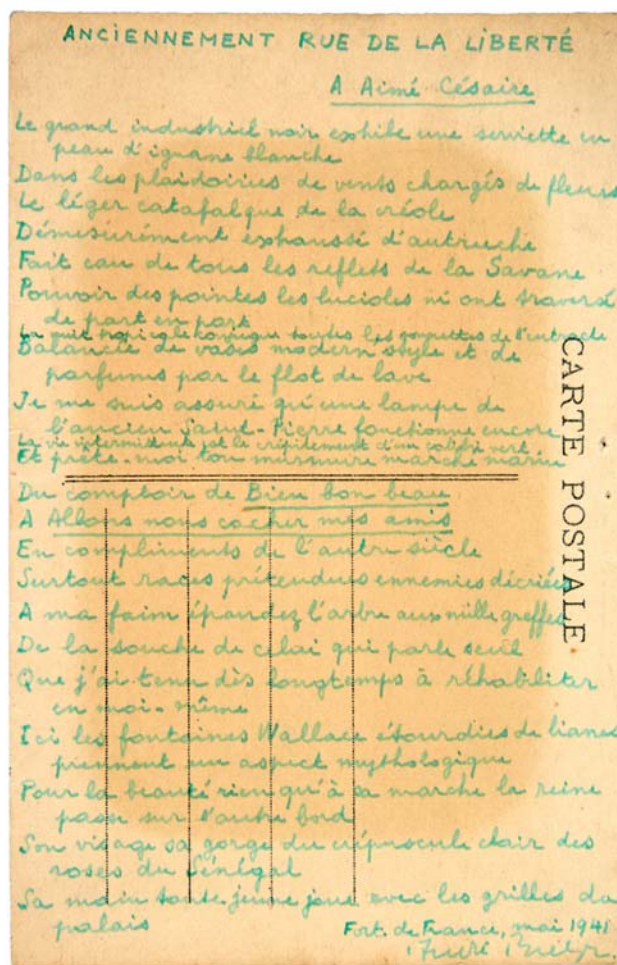 ANCIENNEMENT RUE DE LA LIBERTÉ
A Aimé Césaire
Le grand industriel noir exhibe une serviette en
peau d'iguane blanche
Dans les plaidoiries de vents chargés de fleurs
Le léger catafalque de la créole
Démesurément exhaussé d'autruche
Fait eau de tous les reflets de la Savane
Pouvoir des pointes les lucioles m'ont traversé
de part en part
La nuit tropicale toutes les de l'entracte
Balancée de vases modern style et de
parfums par le flot de lave
Je me suis assuré qu'une lampe de
l'ancien Saint-Pierre fonctionne encore
La vie intermittente est le crépitement d'un colibri vert
Et prête-moi ton murmure marche marine
Du comptoir de Bien bon beau
A Allons nous cacher mes amis
En compliments de l'autre siècle
Surtout races prétendues ennemies décriées
A ma faim épandez l'arbre aux mille greffes
De la souche de celui qui parle seul
Que j'ai tenu dès longtemps à réhabiliter
en moi-même
Ici les fontaines Wallace étourdies de lianes
prennent un aspect mythologique
Pour la beauté rien qu'à sa marche la reine
passe sur l'autre bord
Son visage sa gorge du crépuscule clair des
roses du Sénégal
Sa main toute jeune joue avec les grilles du
palais
Fort-de-France, mai 1941
André Breton
CARTE POSTALE